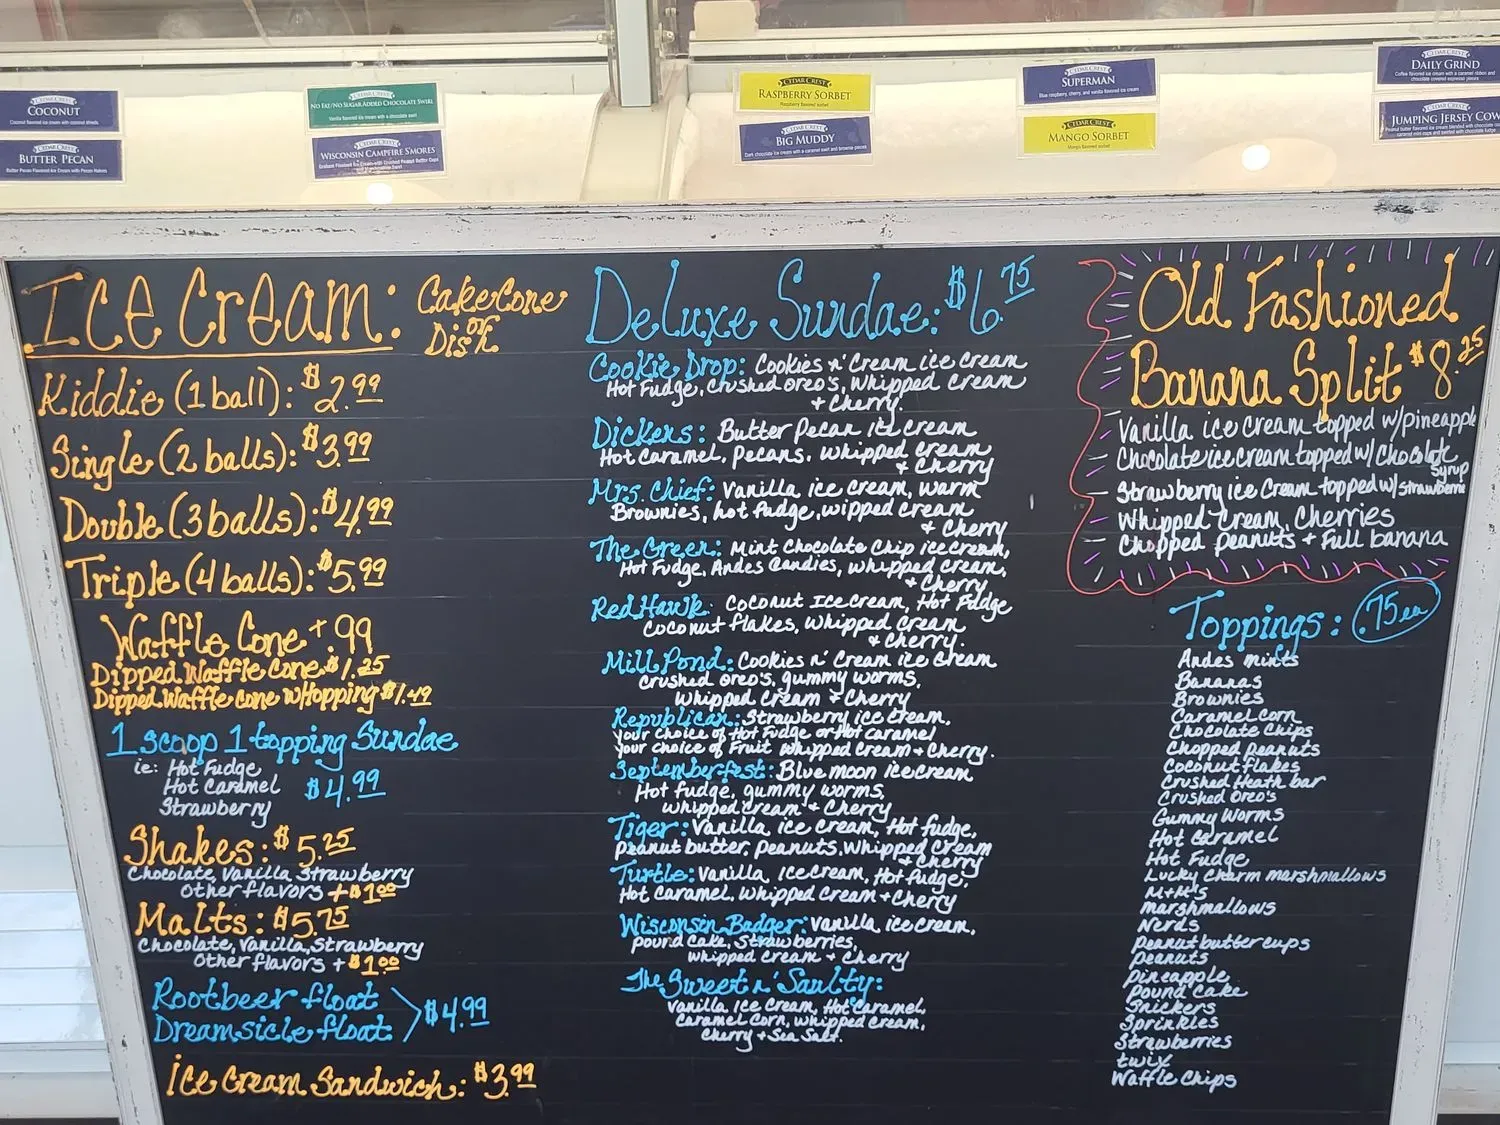 CEDAR CREST
COCONUT
Coconut flavored ice cream with coconut shreds
CEDAR CREST
BUTTER PECAN
Butter Pecan Flavored Ice Cream with Pecan Halves
CEDAR CREST
NO FAT/NO SUGAR ADDED CHOCOLATE SWIRL
Vanilla flavored ice cream with a chocolate swirl
CEDAR CREST
WISCONSIN CAMPFIRE S'MORES
CEDAR CREST
RASPBERRY SORBET
Raspberry flavored sorbet
CEDAR CREST
BIG MUDDY
Dark chocolate ice cream with a caramel swirl and brownie pieces
CEDAR CREST
SUPERMAN
Blue raspberry, cherry, and vanilla flavored ice cream
CEDAR CREST
MANGO SORBET
Mango flavored sorbet
CEDAR CREST
DAILY GRIND
Coffee flavored ice cream with a caramel ribbon and
chocolate covered espresso pieces
CEDAR CREST
JUMPING JERSEY COW
Ice Cream: Cake Cone
or
Dish
Kiddie (1 ball): $2.99
Single (2 balls): $3.99
Double (3 balls): $4.99
Triple (4 balls): $5.99
Waffle Cone + .99
Dipped Waffle Cone $1.25
Dipped Waffle cone w/topping $1.49
1 scoop 1 topping Sundae
ie: Hot Fudge
Hot Caramel $4.99
Strawberry
Shakes: $5.25
Chocolate, Vanilla, Strawberry
Other flavors +$1.00
Malts: $5.75
Chocolate, Vanilla, Strawberry
Other flavors +$1.00
Rootbeer float
Dreamsicle float $4.99
Ice Cream Sandwich: $3.99
Deluxe Sundae: $6.75
Cookie Drop: Cookies n' Cream ice cream
Hot Fudge, Crushed Oreo's, Whipped cream
+ Cherry.
Dickens: Butter Pecan ice cream
Hot Caramel, Pecans, Whipped cream
+ Cherry
Mrs. Chief: Vanilla ice cream, warm
Brownies, hot fudge, wipped cream
+ Cherry
The Green: Mint Chocolate Chip ice cream,
Hot Fudge, Andes Candies, Whipped cream,
+ Cherry
Red Hawk: Coconut Ice Cream, Hot Fudge
Coconut flakes, Whipped cream
+ Cherry.
Mill Pond: Cookies n' Cream ice cream
Crushed Oreo's, gummy worms,
Whipped Cream + Cherry
Republican: Strawberry ice cream,
your choice of Hot Fudge or Hot caramel
your choice of Fruit Whipped Cream + Cherry.
Septemberfest: Blue moon ice cream
Hot fudge, gummy worms,
Whipped cream + Cherry
Tiger: Vanilla ice cream, Hot fudge,
Peanut butter, Peanuts, Whipped Cream
+ Cherry
Turtle: Vanilla, ice cream, Hot fudge,
Hot Caramel, Whipped Cream + Cherry
Wisconsin Badger: Vanilla ice cream,
pound cake, Strawberries,
Whipped Cream + Cherry
The Sweet n' Saulty:
Vanilla Ice Cream, Hot Caramel,
Caramel Corn, Whipped Cream,
Cherry + Sea Salt.
Old Fashioned
Banana Split $8.25
Vanilla ice cream topped w/pineapple
Chocolate ice cream topped w/ chocolate
syrup
Strawberry ice cream topped w/ strawberries
Whipped Cream, Cherries
Chopped peanuts + Full banana
Toppings: .75 ea
Andes mints
Bananas
Brownies
Caramel corn
Chocolate Chips
Chopped Peanuts
Coconut flakes
Crushed Heath bar
Crushed Oreo's
Gummy Worms
Hot Caramel
Hot Fudge
Lucky Charm marshmallows
M+M's
Marshmallows
Nerds
Peanut butter cups
Peanuts
Pineapple
Pound Cake
Snickers
Sprinkles
Strawberries
Twix
Waffle Chips